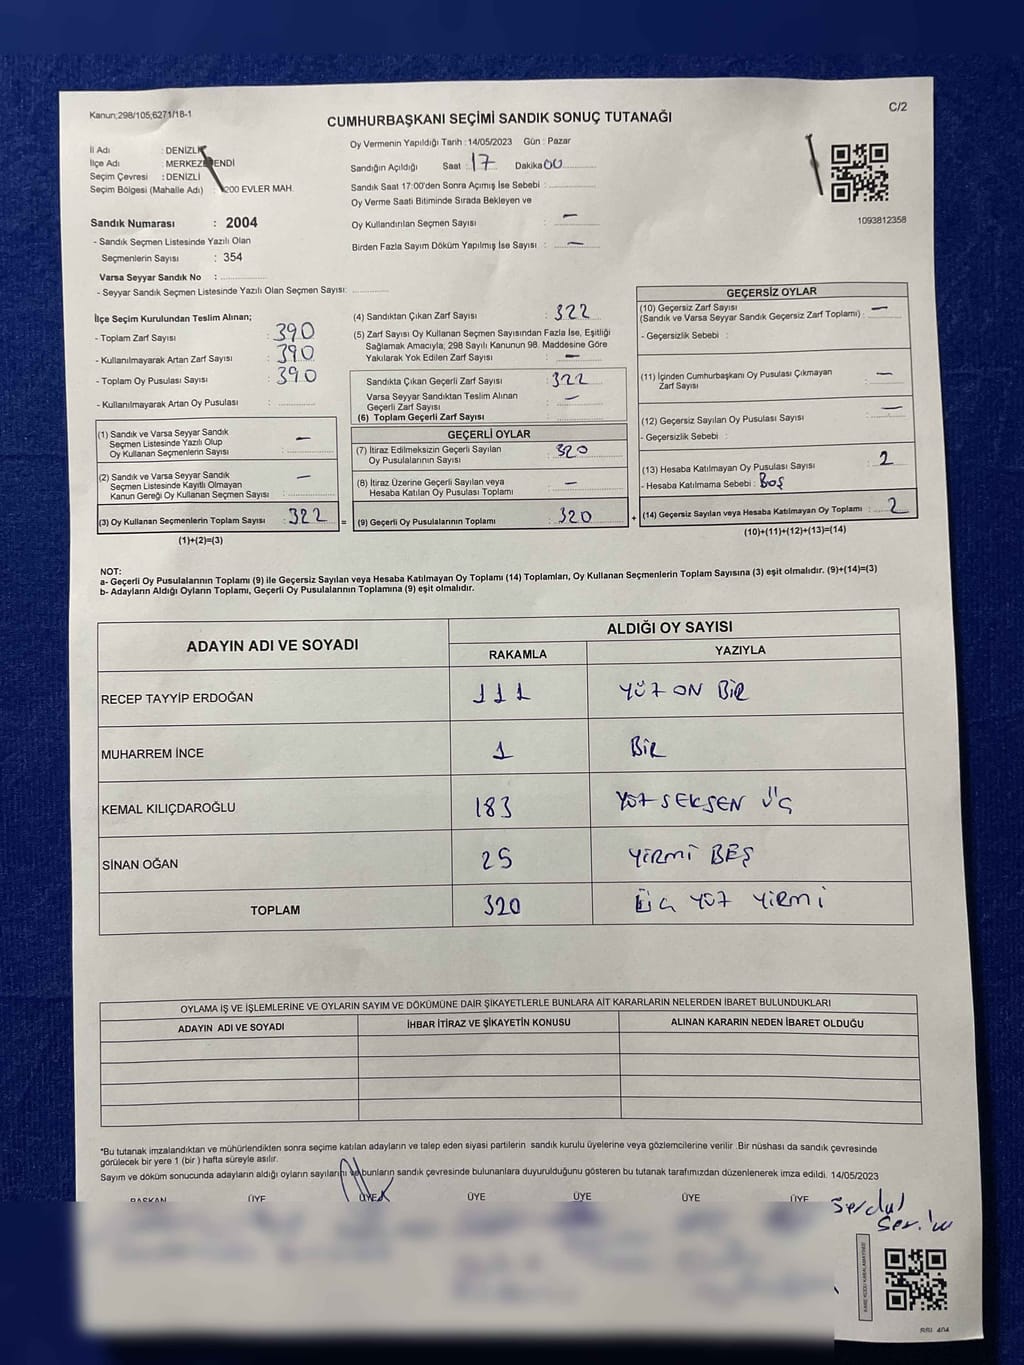 Kanun;298/105;6271/18-1
C/2
CUMHURBAŞKANI SEÇİMİ SANDIK SONUÇ TUTANAĞI
İl Adı : DENİZLİ
İlçe Adı : MERKEZEFENDİ
Seçim Çevresi : DENİZLİ
Seçim Bölgesi (Mahalle Adı) : 1200 EVLER MAH.
Oy Vermenin Yapıldığı Tarih : 14/05/2023 Gün : Pazar
Sandığın Açıldığı Saat : 17 Dakika 00
Sandık Saat 17:00'den Sonra Açılmış İse Sebebi :
Oy Verme Saati Bitiminde Sırada Bekleyen ve
Oy Kullandırılan Seçmen Sayısı : —
Birden Fazla Sayım Döküm Yapılmış İse Sayısı : —
1093812358
Sandık Numarası : 2004
- Sandık Seçmen Listesinde Yazılı Olan
Seçmenlerin Sayısı : 354
Varsa Seyyar Sandık No :
- Seyyar Sandık Seçmen Listesinde Yazılı Olan Seçmen Sayısı:
İlçe Seçim Kurulundan Teslim Alınan;
- Toplam Zarf Sayısı : 390
- Kullanılmayarak Artan Zarf Sayısı : 390
- Toplam Oy Pusulası Sayısı : 390
- Kullanılmayarak Artan Oy Pusulası :
(1) Sandık ve Varsa Seyyar Sandık
Seçmen Listesinde Yazılı Olup
Oy Kullanan Seçmenlerin Sayısı : —
(2) Sandık ve Varsa Seyyar Sandık
Seçmen Listesinde Kayıtlı Olmayan
Kanun Gereği Oy Kullanan Seçmen Sayısı : —
(3) Oy Kullanan Seçmenlerin Toplam Sayısı : 322 =
(1)+(2)=(3)
(4) Sandıktan Çıkan Zarf Sayısı : 322
(5) Zarf Sayısı Oy Kullanan Seçmen Sayısından Fazla İse, Eşitliği
Sağlamak Amacıyla; 298 Sayılı Kanunun 98. Maddesine Göre
Yakılarak Yok Edilen Zarf Sayısı : —
Sandıkta Çıkan Geçerli Zarf Sayısı : 322
Varsa Seyyar Sandıktan Teslim Alınan
Geçerli Zarf Sayısı : —
(6) Toplam Geçerli Zarf Sayısı :
GEÇERLİ OYLAR
(7) İtiraz Edilmeksizin Geçerli Sayılan
Oy Pusulalarının Sayısı : 320
(8) İtiraz Üzerine Geçerli Sayılan veya
Hesaba Katılan Oy Pusulası Toplamı : —
(9) Geçerli Oy Pusulalarının Toplamı : 320 +
GEÇERSİZ OYLAR
(10) Geçersiz Zarf Sayısı
(Sandık ve Varsa Seyyar Sandık Geçersiz Zarf Toplamı) : —
- Geçersizlik Sebebi :
(11) İçinden Cumhurbaşkanı Oy Pusulası Çıkmayan
Zarf Sayısı : —
(12) Geçersiz Sayılan Oy Pusulası Sayısı : —
- Geçersizlik Sebebi :
(13) Hesaba Katılmayan Oy Pusulası Sayısı : 2
- Hesaba Katılmama Sebebi : Boş
(14) Geçersiz Sayılan veya Hesaba Katılmayan Oy Toplamı : 2
(10)+(11)+(12)+(13)=(14)
NOT:
a- Geçerli Oy Pusulalarının Toplamı (9) ile Geçersiz Sayılan veya Hesaba Katılmayan Oy Toplamı (14) Toplamları, Oy Kullanan Seçmenlerin Toplam Sayısına (3) eşit olmalıdır. (9)+(14)=(3)
b- Adayların Aldığı Oyların Toplamı, Geçerli Oy Pusulalarının Toplamına (9) eşit olmalıdır.
ADAYIN ADI VE SOYADI
ALDIĞI OY SAYISI
RAKAMLA YAZIYLA
RECEP TAYYİP ERDOĞAN 111 YÜZ ON BİR
MUHARREM İNCE 1 BİR
KEMAL KILIÇDAROĞLU 183 YÜZ SEKSEN ÜÇ
SİNAN OĞAN 25 YİRMİ BEŞ
TOPLAM 320 ÜÇ YÜZ YİRMİ
OYLAMA İŞ VE İŞLEMLERİNE VE OYLARIN SAYIM VE DÖKÜMÜNE DAİR ŞİKAYETLERLE BUNLARA AİT KARARLARIN NELERDEN İBARET BULUNDUKLARI
ADAYIN ADI VE SOYADI İHBAR İTİRAZ VE ŞİKAYETİN KONUSU ALINAN KARARIN NEDEN İBARET OLDUĞU
*Bu tutanak imzalandıktan ve mühürlendikten sonra seçime katılan adayların ve talep eden siyasi partilerin sandık kurulu üyelerine veya gözlemcilerine verilir .Bir nüshası da sandık çevresinde
görülecek bir yere 1 (bir ) hafta süreyle asılır.
Sayım ve döküm sonucunda adayların aldığı oyların sayılarını ve bunların sandık çevresinde bulunanlara duyurulduğunu gösteren bu tutanak tarafımızdan düzenlenerek imza edildi. 14/05/2023
BAŞKAN ÜYE ÜYE ÜYE ÜYE ÜYE ÜYE